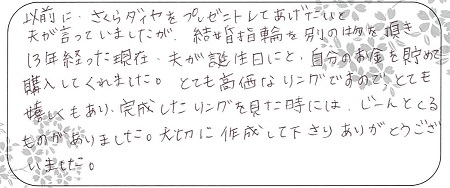 以前に、さくらダイヤをプレゼントしてあげたいと
夫が言っていましたが、結婚指輪を別の物を頂き
13年経った現在、夫が誕生日にと、自分のお金を貯めて
購入してくれました。とても高価なリングですので、とても
嬉しくもあり、完成したリングを見た時には、じーんとくる
ものがありました。大切に作成して下さりありがとうござ
いました。